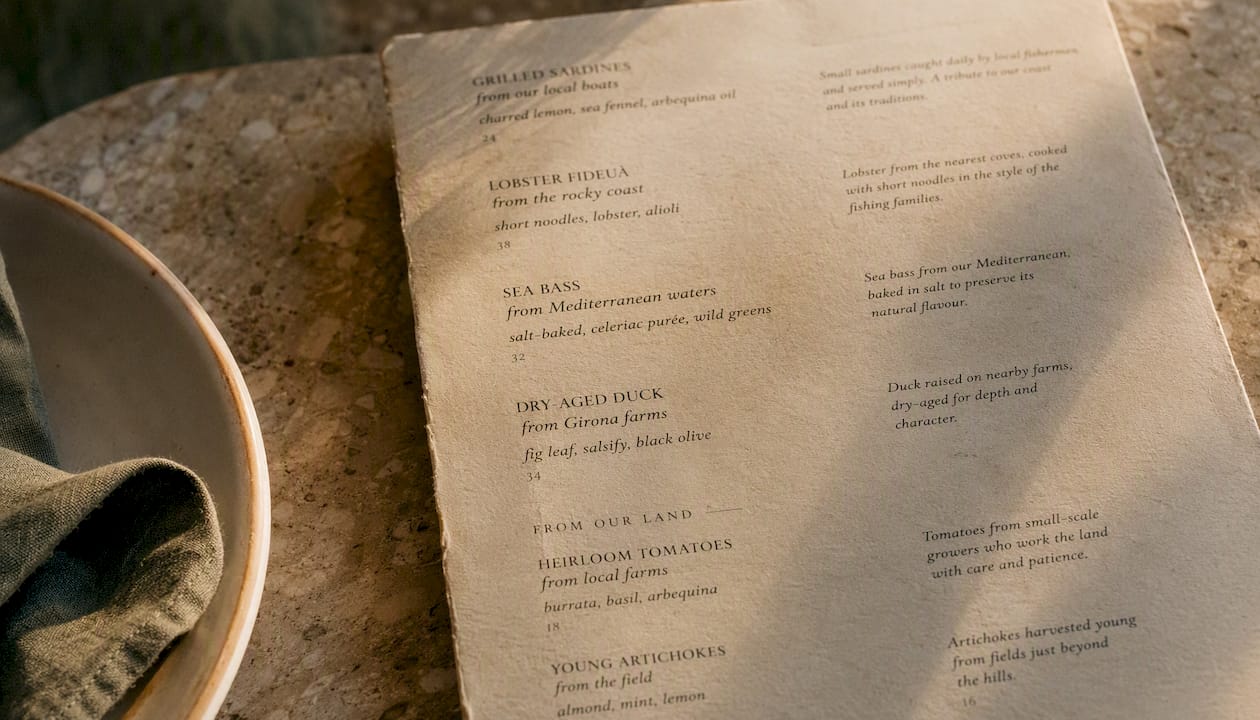 GRILLED SARDINES
from our local boats
charred lemon, sea fennel, arbequina oil
24
Small sardines caught daily by local fishermen
and served simply. A tribute to our coast
and its traditions.
LOBSTER FIDEUÀ
from the rocky coast
short noodles, lobster, alioli
38
Lobster from the nearest coves, cooked
with short noodles in the style of the
fishing families.
SEA BASS
from Mediterranean waters
salt-baked, celeriac purée, wild greens
32
Sea bass from our Mediterranean,
baked in salt to preserve its
natural flavour.
DRY-AGED DUCK
from Girona farms
fig leaf, salsify, black olive
34
Duck raised on nearby farms,
dry-aged for depth and
character.
FROM OUR LAND
HEIRLOOM TOMATOES
from local farms
burrata, basil, arbequina
18
Tomatoes from small-scale
growers who work the land
with care and patience.
YOUNG ARTICHOKES
from the field
almond, mint, lemon
Artichokes harvested young
from fields just beyond
the hills.
16